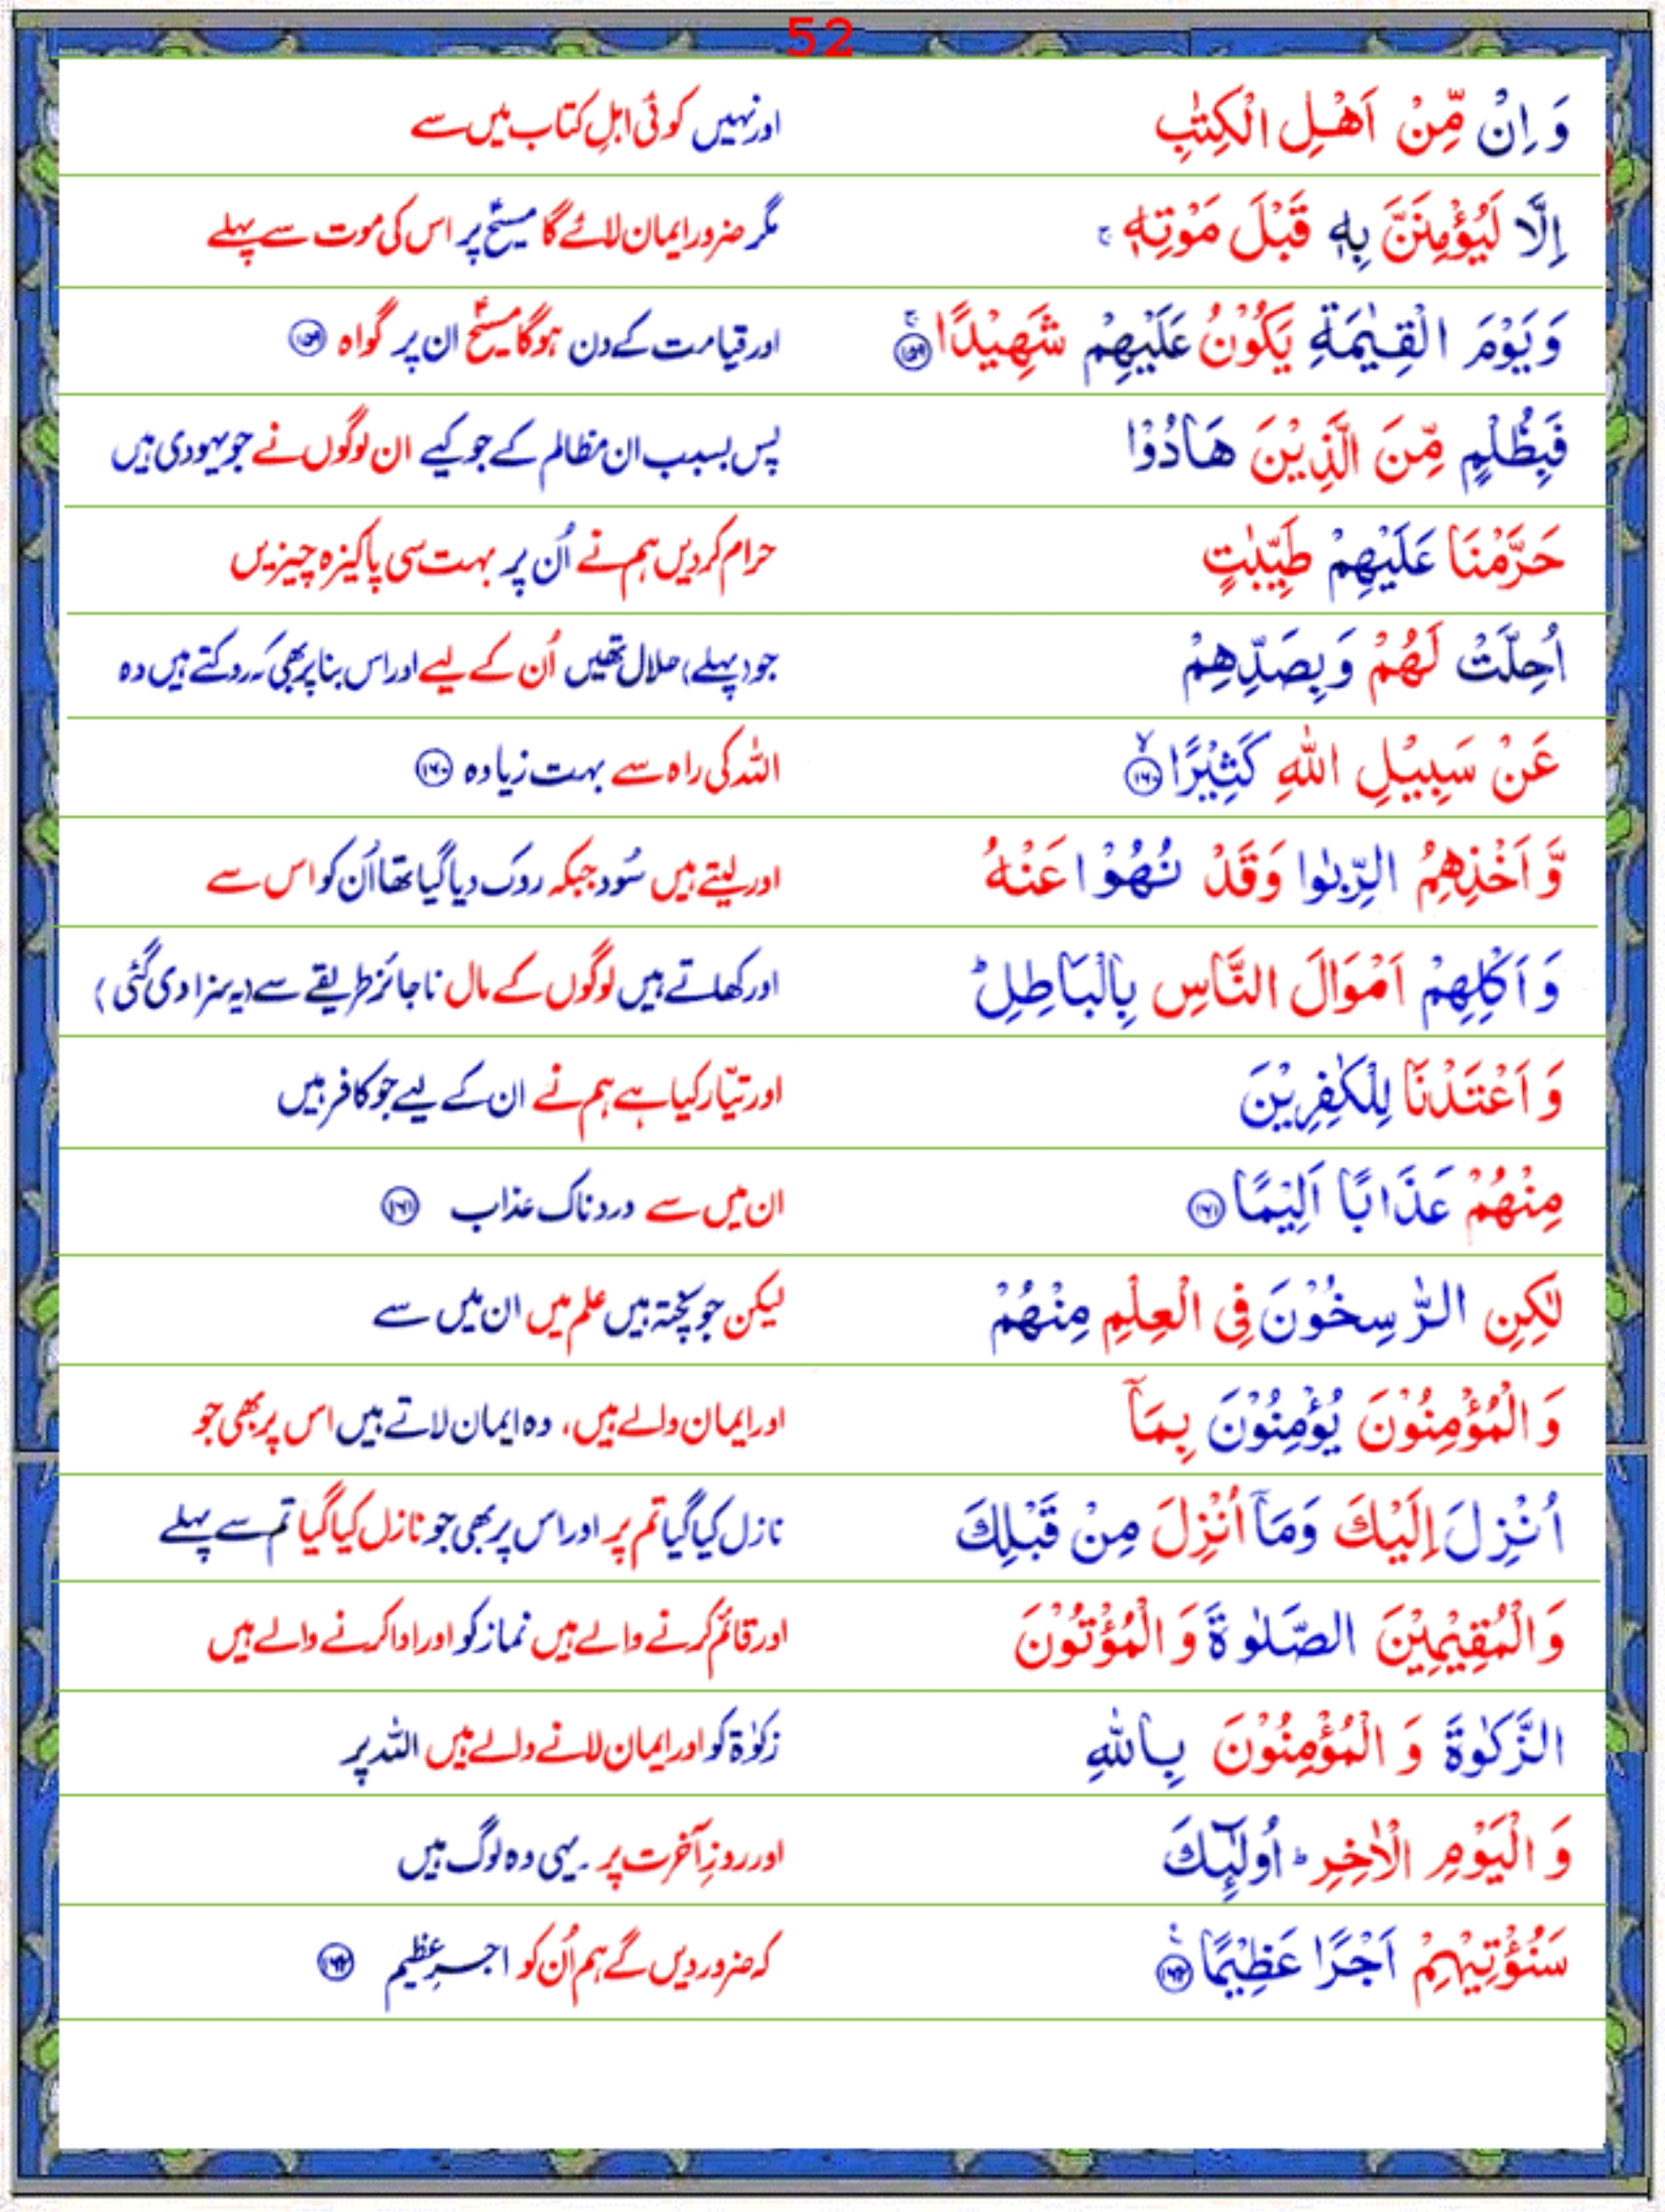 52
وَ اِنْ مِّنْ اَهْلِ الْكِتٰبِ اور نہیں کوئی اہلِ کتاب میں سے
اِلَّا لَيُؤْمِنَنَّ بِهٖ قَبْلَ مَوْتِهٖ ۚ مگر ضرور ایمان لائے گا مسیحؑ پر اس کی موت سے پہلے
وَيَوْمَ الْقِيٰمَةِ يَكُوْنُ عَلَيْهِمْ شَهِيْدًا ۚ ﴿۱۵۹﴾ اور قیامت کے دن ہوگا مسیحؑ ان پر گواہ ﴿۱۵۹﴾
فَبِظُلْمٍ مِّنَ الَّذِيْنَ هَادُوْا پس بسبب ان مظالم کے جو کیے ان لوگوں نے جو یہودی ہیں
حَرَّمْنَا عَلَيْهِمْ طَيِّبٰتٍ حرام کر دیں ہم نے اُن پر بہت سی پاکیزہ چیزیں
اُحِلَّتْ لَهُمْ وَبِصَدِّهِمْ جو (پہلے) حلال تھیں اُن کے لیے اور اس بنا پر بھی کہ روکتے ہیں وہ
عَنْ سَبِيْلِ اللّٰهِ كَثِيْرًا ۙ ﴿۱۶۰﴾ اللہ کی راہ سے بہت زیادہ ﴿۱۶۰﴾
وَّ اَخْذِهِمُ الرِّبٰوا وَقَدْ نُهُوْا عَنْهُ اور لیتے ہیں سُود جبکہ روک دیا گیا تھا اُن کو اس سے
وَ اَكْلِهِمْ اَمْوَالَ النَّاسِ بِالْبَاطِلِ ؕ اور کھاتے ہیں لوگوں کے مال ناجائز طریقے سے (یہ سزا دی گئی)
وَ اَعْتَدْنَا لِلْكٰفِرِيْنَ اور تیّار کیا ہے ہم نے ان کے لیے جو کافر ہیں
مِنْهُمْ عَذَابًا اَلِيْمًا ﴿۱۶۱﴾ ان میں سے دردناک عذاب ﴿۱۶۱﴾
لٰكِنِ الرّٰسِخُوْنَ فِى الْعِلْمِ مِنْهُمْ لیکن جو پختہ ہیں علم میں ان میں سے
وَ الْمُؤْمِنُوْنَ يُؤْمِنُوْنَ بِمَآ اور ایمان والے ہیں، وہ ایمان لاتے ہیں اس پر بھی جو
اُنْزِلَ اِلَيْكَ وَمَآ اُنْزِلَ مِنْ قَبْلِكَ نازل کیا گیا تم پر اور اس پر بھی جو نازل کیا گیا تم سے پہلے
وَ الْمُقِيْمِيْنَ الصَّلٰوةَ وَ الْمُؤْتُوْنَ اور قائم کرنے والے ہیں نماز کو اور ادا کرنے والے ہیں
الزَّكٰوةَ وَ الْمُؤْمِنُوْنَ بِاللّٰهِ زکوٰۃ کو اور ایمان لانے والے ہیں اللہ پر
وَ الْيَوْمِ الْاٰخِرِ ؕ اُولٰٓئِكَ اور روزِ آخرت پر۔ یہی وہ لوگ ہیں
سَنُؤْتِيْهِمْ اَجْرًا عَظِيْمًا ۧ ﴿۱۶۲﴾ کہ ضرور دیں گے ہم اُن کو اجرِ عظیم ﴿۱۶۲﴾